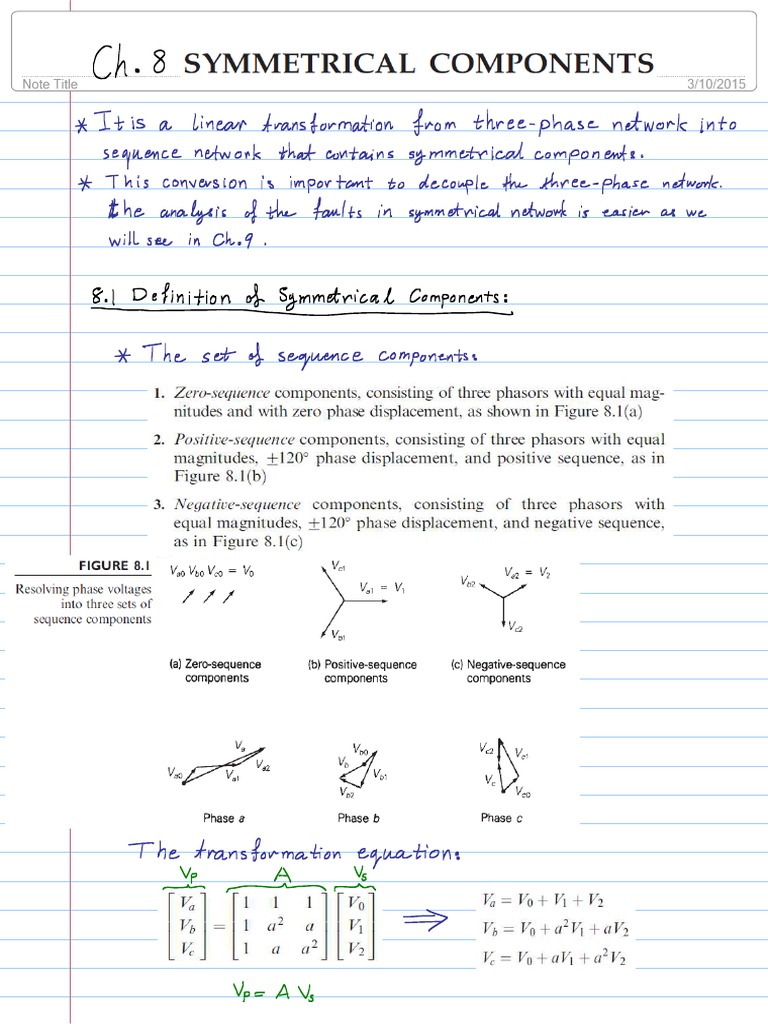 Ch. 8 SYMMETRICAL COMPONENTS
Note Title
3/10/2015
* It is a linear transformation from three-phase network into
sequence network that contains symmetrical components.
* This conversion is important to decouple the three-phase network.
the analysis of the faults in symmetrical network is easier as we
will see in Ch.9.
8.1 Definition of Symmetrical Components:
* The set of sequence components:
1. Zero-sequence components, consisting of three phasors with equal mag-
nitudes and with zero phase displacement, as shown in Figure 8.1(a)
2. Positive-sequence components, consisting of three phasors with equal
magnitudes, ±120° phase displacement, and positive sequence, as in
Figure 8.1(b)
3. Negative-sequence components, consisting of three phasors with
equal magnitudes, ±120° phase displacement, and negative sequence,
as in Figure 8.1(c)
FIGURE 8.1
Resolving phase voltages
into three sets of
sequence components
Va0 Vb0 Vc0 = V0
Vc1
Va1 = V1
Vb1
Va2 = V2
Vb2
Vc2
(a) Zero-sequence
components
(b) Positive-sequence
components
(c) Negative-sequence
components
Va
Va0
Va1
Va2
Vb0
Vb
Vb1
Vb2
Vc2
Vc1
Vc
Vc0
Phase a
Phase b
Phase c
The transformation equation:
Vp A Vs
[Va] [1 1 1] [V0]
[Vb] = [1 a² a] [V1]
[Vc] [1 a a²] [V2]
⇒
Va = V0 + V1 + V2
Vb = V0 + a²V1 + aV2
Vc = V0 + aV1 + a²V2
Vp = A Vs